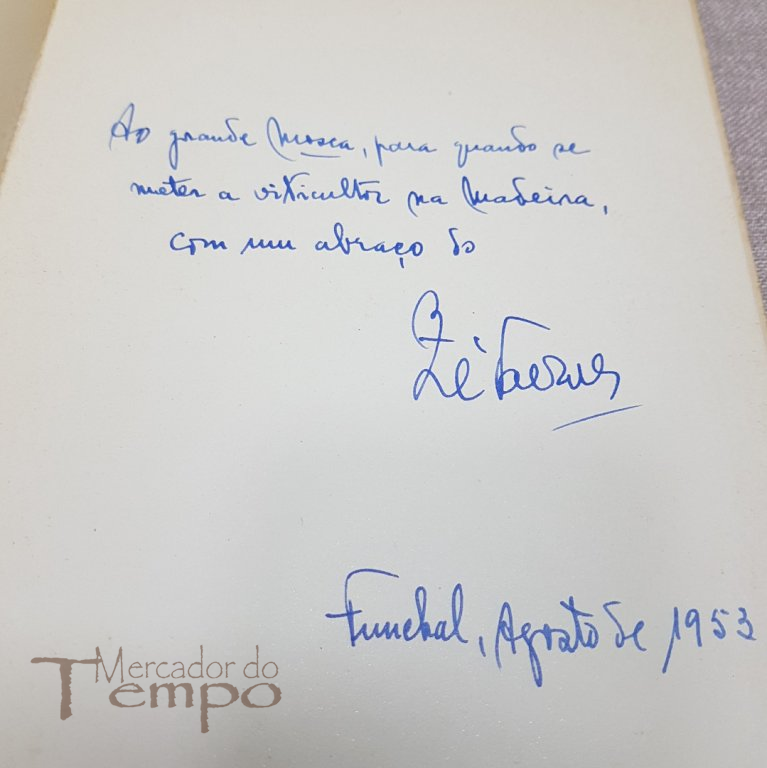 Ao grande Mosca, para quando se
meter a viticultor na Madeira,
com um abraço do
Zé
Funchal, Agosto de 1953
Mercador do
Tempo